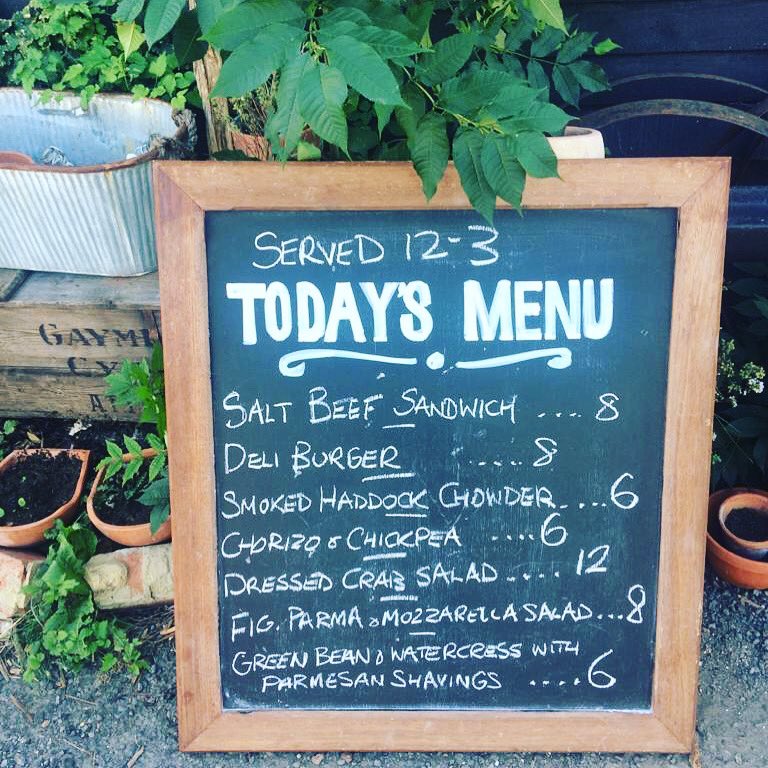 SERVED 12-3
TODAY'S MENU
SALT BEEF SANDWICH .... 8
DELI BURGER ..... 8
SMOKED HADDOCK CHOWDER .... 6
CHORIZO & CHICKPEA .... 6
DRESSED CRAB SALAD .... 12
FIG. PARMA & MOZZARELLA SALAD ... 8
GREEN BEAN & WATERCRESS WITH
PARMESAN SHAVINGS .... 6